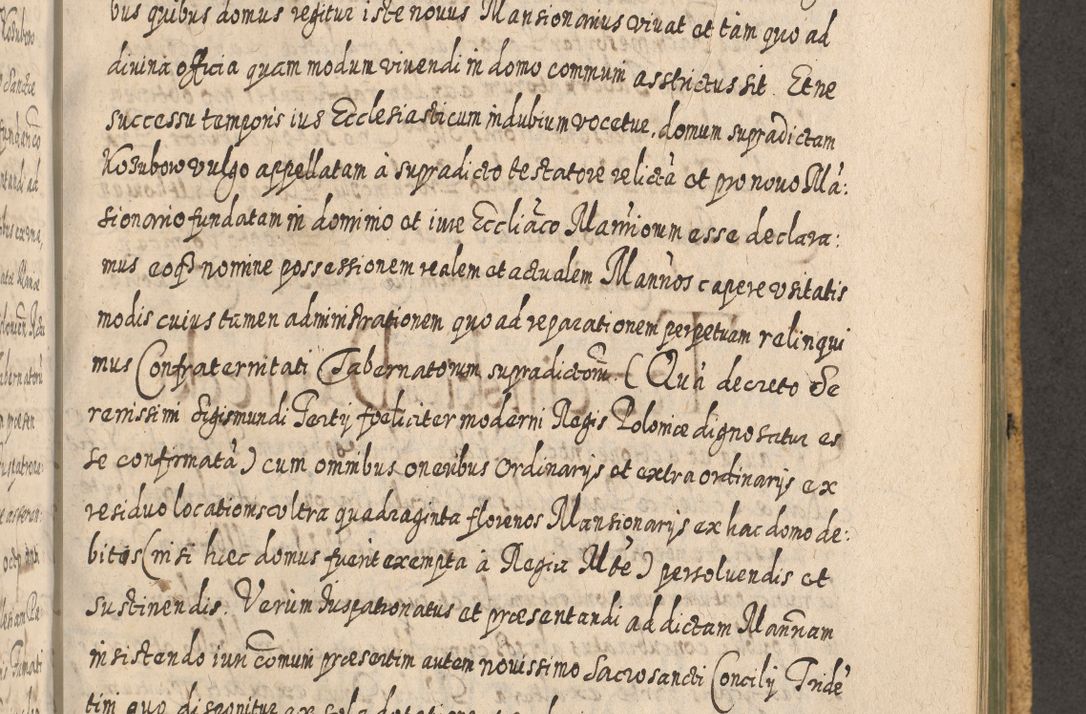 bus quibus domus regitur iste novus Mansionarius vivat et tam quo ad
divina officia quam modum vivendi in domo communi asstrictus sit. Et ne
successu temporis ius Ecclesiasticum in dubium vocetur, domum supradictam
Kosubow vulgo appellatam à supradicto testatore relictà et pro novo Mã:
sionario fundatam in dominio et iure Eccliãco Mannorum esse declara:
mus eoq3 nomine possessionem realem et actualem Mannõs capere usitatis
modis cuius tamen administrationem quo ad reparationem perpetuam relinqui
mus Confraternitati Tabernatorum supradictorũ. (Quà decreto Se
renissimi Sigismundi Tertij fœliciter moderni Regis Poloniæ dignoscatur es
se confirmatà) cum omnibus oneribus Ordinarijs et extraordinarijs ex
residuo locationis ultra quadraginta florenos Mansionarijs ex hac domo de:
bitos (nisi hæc domus fuerit exempta à Regia Mtẽ) persolvendis et
sustinendis. Verùm Juspatronatus et præsentandi ad dictam Manñam
insistendo iuri cõmuni præsertim autem novissimo Sacrosancti Concilij Tridẽ
tim quo disponitur ex sola